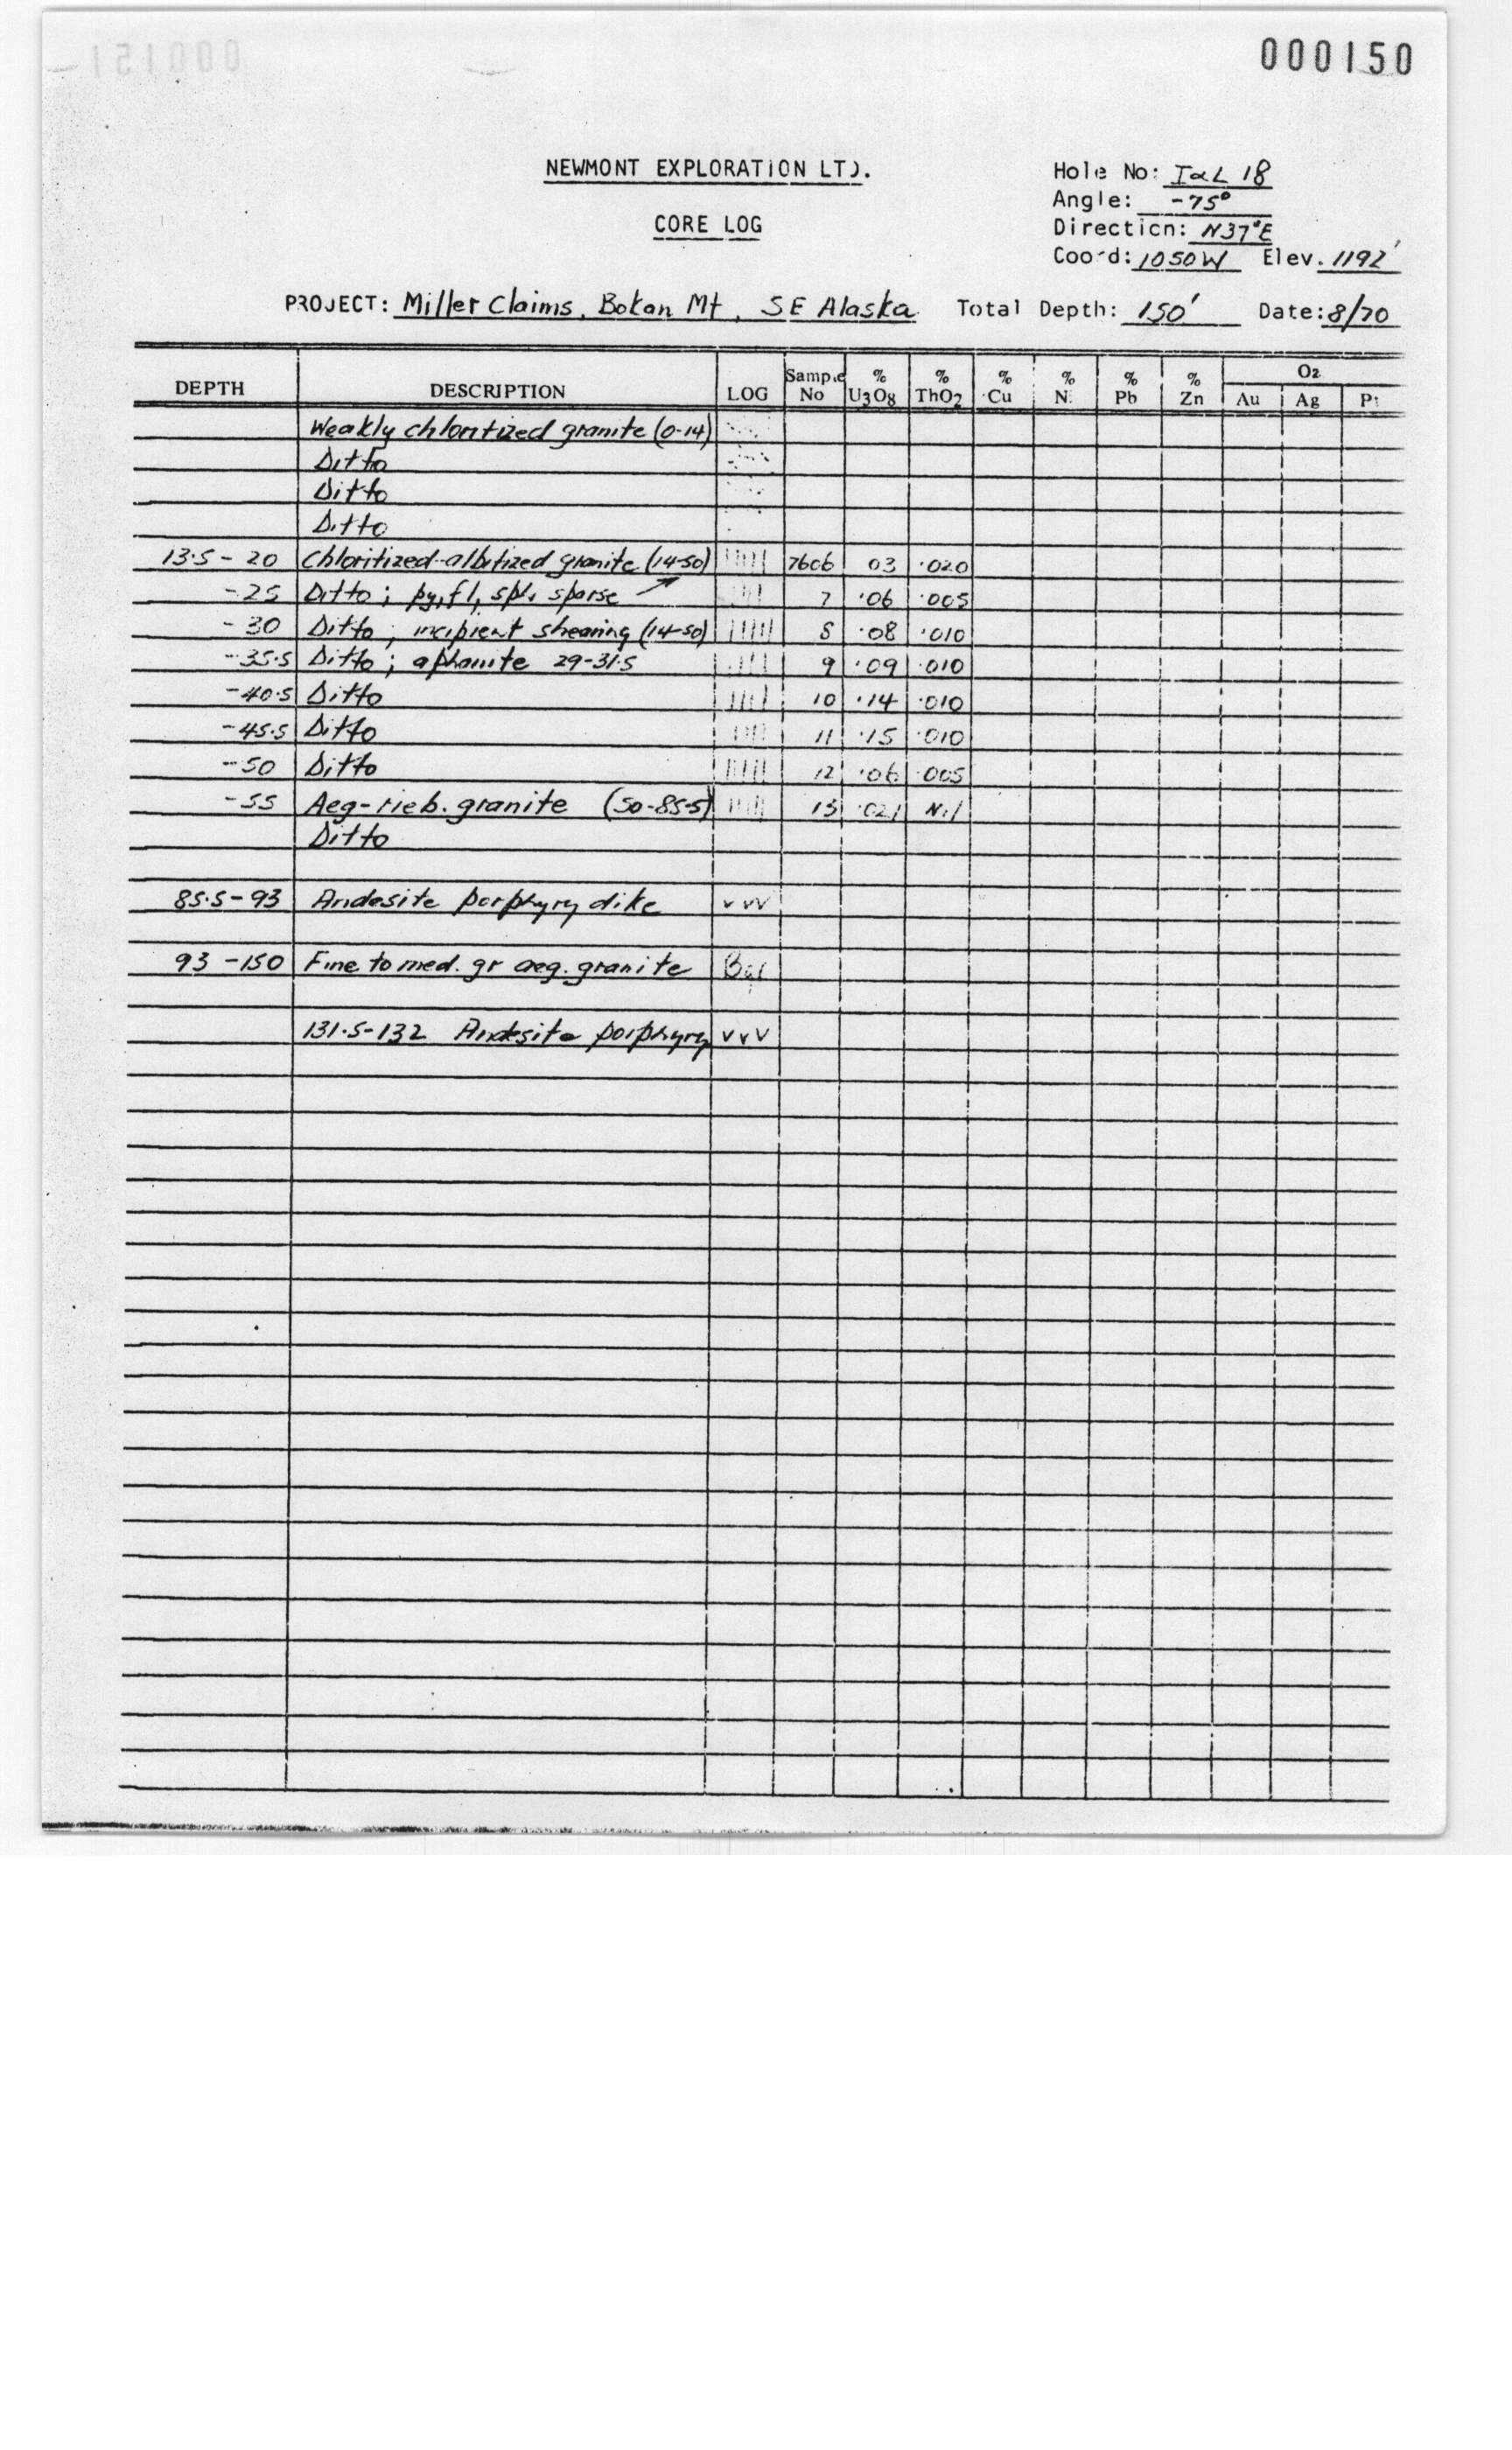 000150
NEWMONT EXPLORATION LTD.
CORE LOG
Hole No: I&L 18
Angle: -75°
Direction: N37°E
Coord: 1050W Elev. 1192'
PROJECT: Miller Claims, Bokan Mt, SE Alaska Total Depth: 150' Date: 8/70
DEPTH DESCRIPTION LOG Sample No % U3O8 % ThO2 % Cu % Ni % Pb % Zn Oz Au Ag Pt
Weakly chloritized granite (0-14)
Ditto
Ditto
Ditto
13.5 - 20 Chloritized-albitized granite (14-50) 7606 03 .020
-25 Ditto; py, fl, sph sparse 7 .06 .005
-30 Ditto; incipient shearing (14-50) 8 .08 .010
-35.5 Ditto; aphanite 29-31.5 9 .09 .010
-40.5 Ditto 10 .14 .010
-45.5 Ditto 11 .15 .010
-50 Ditto 12 .06 .005
-55 Aeg-rieb. granite (50-85.5) 13 .021 Nil
Ditto
85.5-93 Andesite porphyry dike v vv
93-150 Fine to med. gr aeg. granite
131.5-132 Andesite porphyry v v v